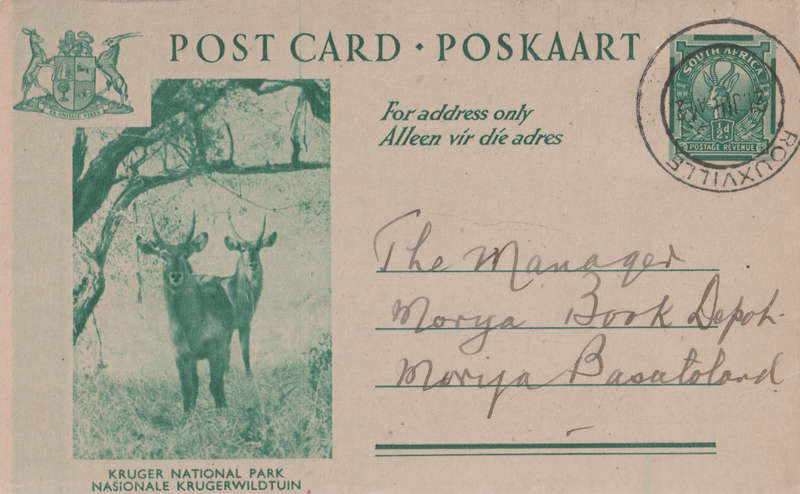 POST CARD · POSKAART
EX UNITATE VIRES
For address only
Alleen vir die adres
SOUTH AFRICA
½d
POSTAGE REVENUE
ROUXVILLE
The Manager
Morija Book Depot
Morija Basutoland
KRUGER NATIONAL PARK
NASIONALE KRUGERWILDTUIN